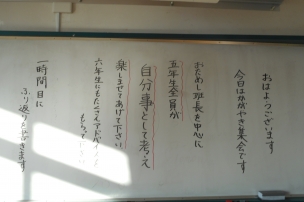 おはようございます
今日はかがやき集会です
おためし班長を中心に
五年生全員が
自分事として考え
楽しませてあげて下さい
六年生にもたくさんアドバイスを
もらって
一時間目に
ふり返りを書きます